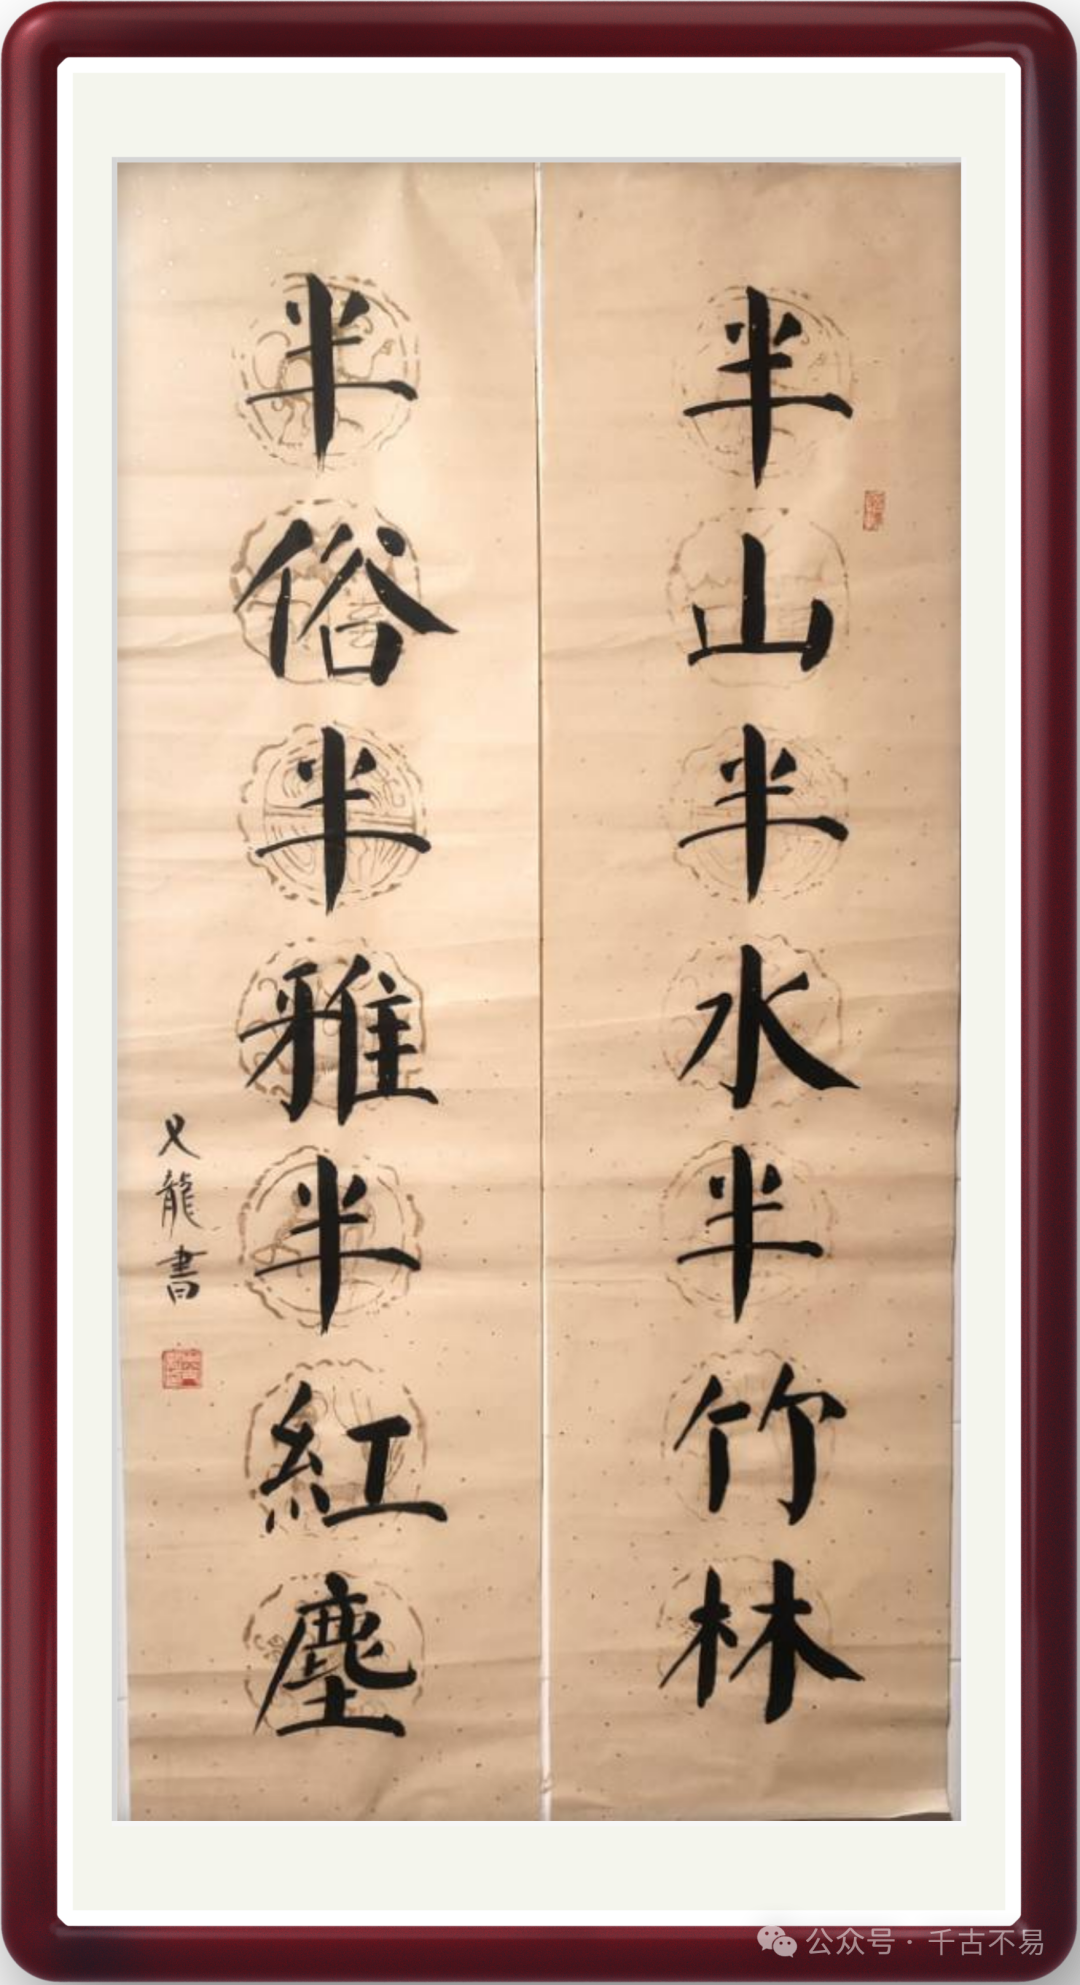 半山半水半竹林
半俗半雅半紅塵
义龍書
公众号·千古不易